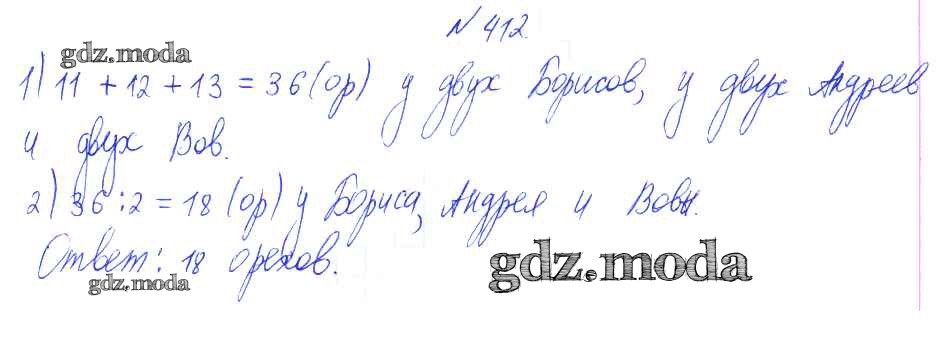 № 412.
gdz.moda
1) 11 + 12 + 13 = 36 (ор) у двух Борисов, у двух Андреев
и двух Вов.
2) 36 : 2 = 18 (ор) у Бориса, Андрея и Вовы.
Ответ: 18 орехов.
gdz.moda
gdz.moda